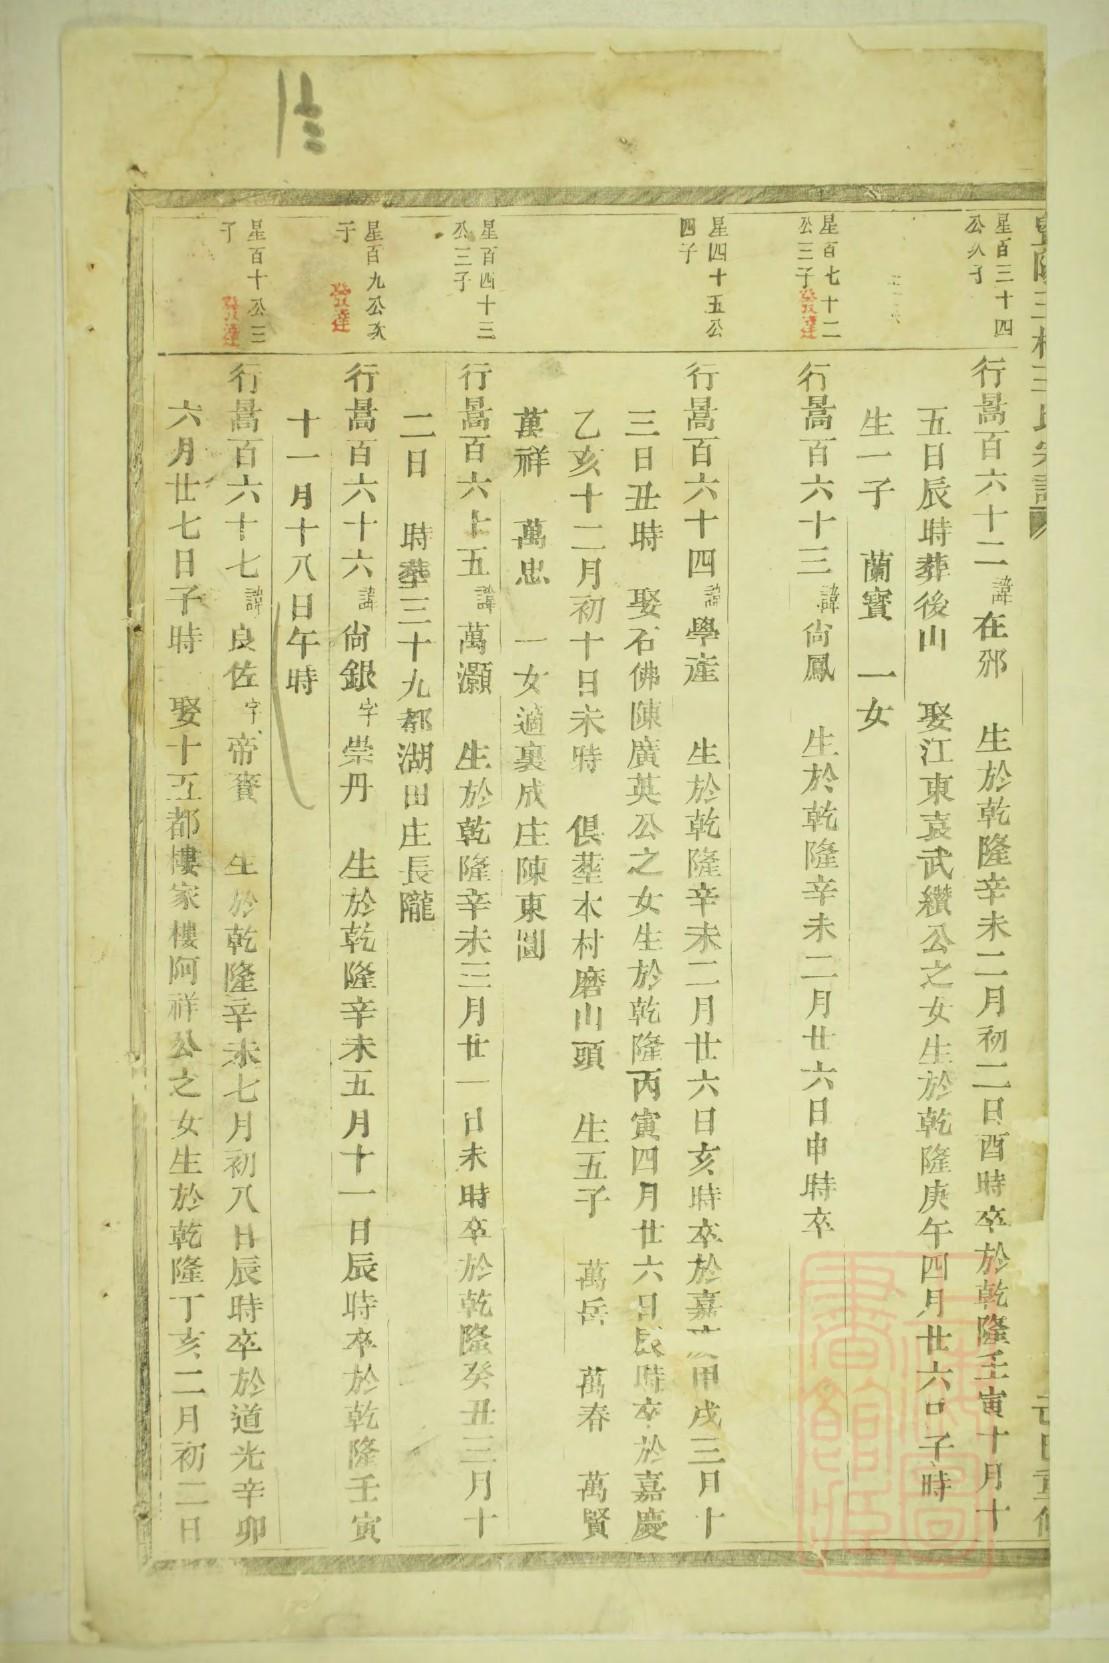 星百三十四
公次子
行暠百六十二諱在邠 生於乾隆辛未二月初二日酉時卒於乾隆壬寅十月十
五日辰時葬後山 娶江東袁武纘公之女生於乾隆庚午四月廿六日子時
生一子 蘭寳 一女
星百七十二
公三子
發達
行暠百六十三諱尙鳳 生於乾隆辛未二月廿六日申時卒
星四十五公
四子
行暠百六十四諱學産 生於乾隆辛未二月廿六日亥時卒於嘉慶甲戌三月十
三日丑時 娶石佛陳廣英公之女生於乾隆丙寅四月廿六日辰時卒於嘉慶
乙亥十二月初十日未時 俱塟本村磨山頭 生五子 萬岳 萬春 萬賢
萬祥 萬忠 一女適裏成庄陳東圓
星百四十三
公三子
行暠百六十五諱萬灝 生於乾隆辛未三月廿一日未時卒於乾隆癸丑三月十
二日 時葬三十九都湖田庄長隴
星百九公次
子
發達
行暠百六十六諱尙銀字崇丹 生於乾隆辛未五月十一日辰時卒於乾隆壬寅
十一月十八日午時
星百十公三
子
發達
行暠百六十七諱良佐字帝賚 生於乾隆辛未七月初八日辰時卒於道光辛卯
六月廿七日子時 娶十五都樓家樓阿祥公之女生於乾隆丁亥二月初二日